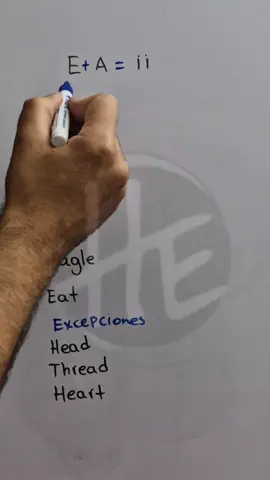 E + A = ii
Eagle
Eat
Excepciones
Head
Thread
Heart
HE